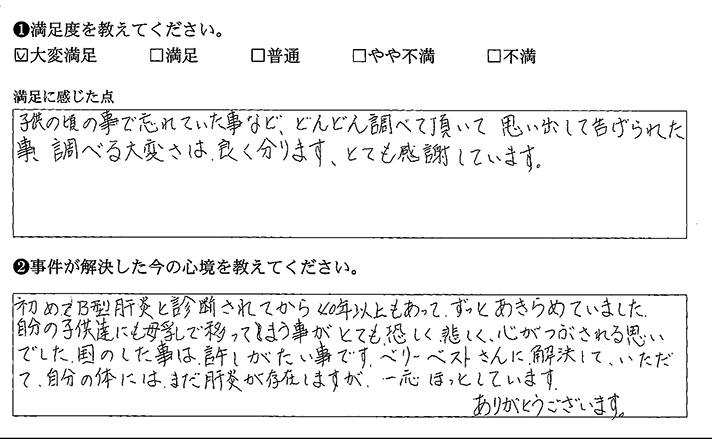 ❶満足度を教えてください。
☑大変満足 □満足 □普通 □やや不満 □不満
満足に感じた点
子供の頃の事で忘れていた事など、どんどん調べて頂いて 思い出して告げられた
事、調べる大変さは、良く分ります、とても感謝しています。
❷事件が解決した今の心境を教えてください。
初めてB型肝炎と診断されてから40年以上もあって、ずっとあきらめていました。
自分の子供達にも母乳で移ってしまう事がとても恐しく悲しく、心がつぶされる思い
でした。国のした事は、許しがたい事です。ベリーベストさんに、解決して、いただ
て、自分の体には、まだ肝炎が存在しますが、一応ほっとしています。
ありがとうございます。